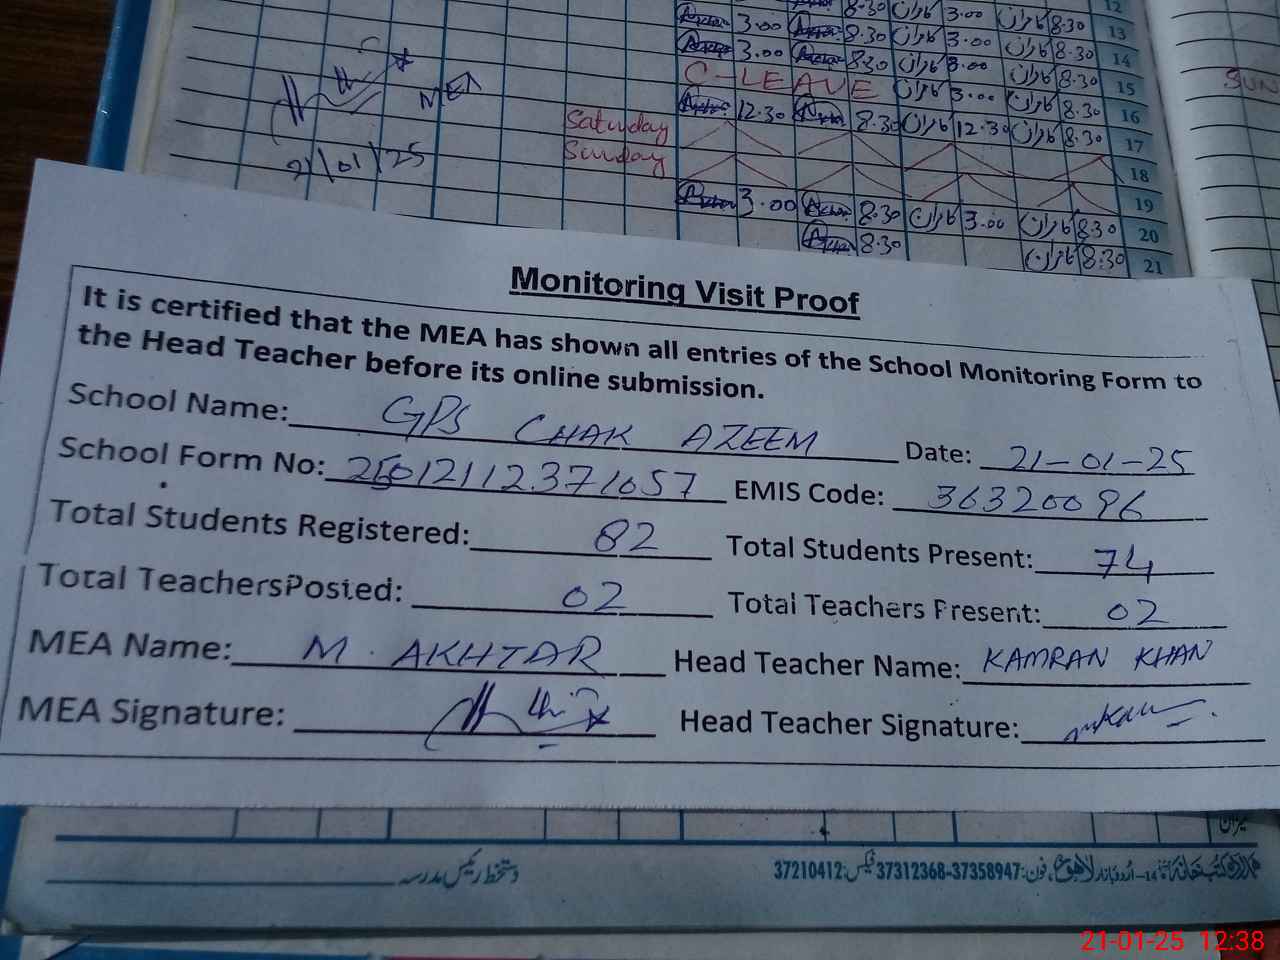 12
3.00 8.30 کامران 3.00 کامران 8.30 13
3.00 8.30 کامران 3.00 کامران 8.30 14
C-LEAVE کامران 3.00 کامران 8.30 15
12.30 8.30 کامران 12.30 کامران 8.30 16
Saturday 17
Sunday 18
19
3.00 8.30 کامران 3.00 کامران 8.30 20
8.30 کامران 8.30 21
SUN
MEA
21/01/25
Monitoring Visit Proof
It is certified that the MEA has shown all entries of the School Monitoring Form to
the Head Teacher before its online submission.
School Name: GPS CHAK AZEEM Date: 21-01-25
School Form No: 25012112371057 EMIS Code: 36320096
Total Students Registered: 82 Total Students Present: 74
Total TeachersPosted: 02 Total Teachers Present: 02
MEA Name: M. AKHTAR Head Teacher Name: KAMRAN KHAN
MEA Signature: Head Teacher Signature:
میزان
دستخط رئیس مدرسہ
14-اردو بازار لاہور، فون: 37358947-37312368 فیکس: 37210412
21-01-25 12:38